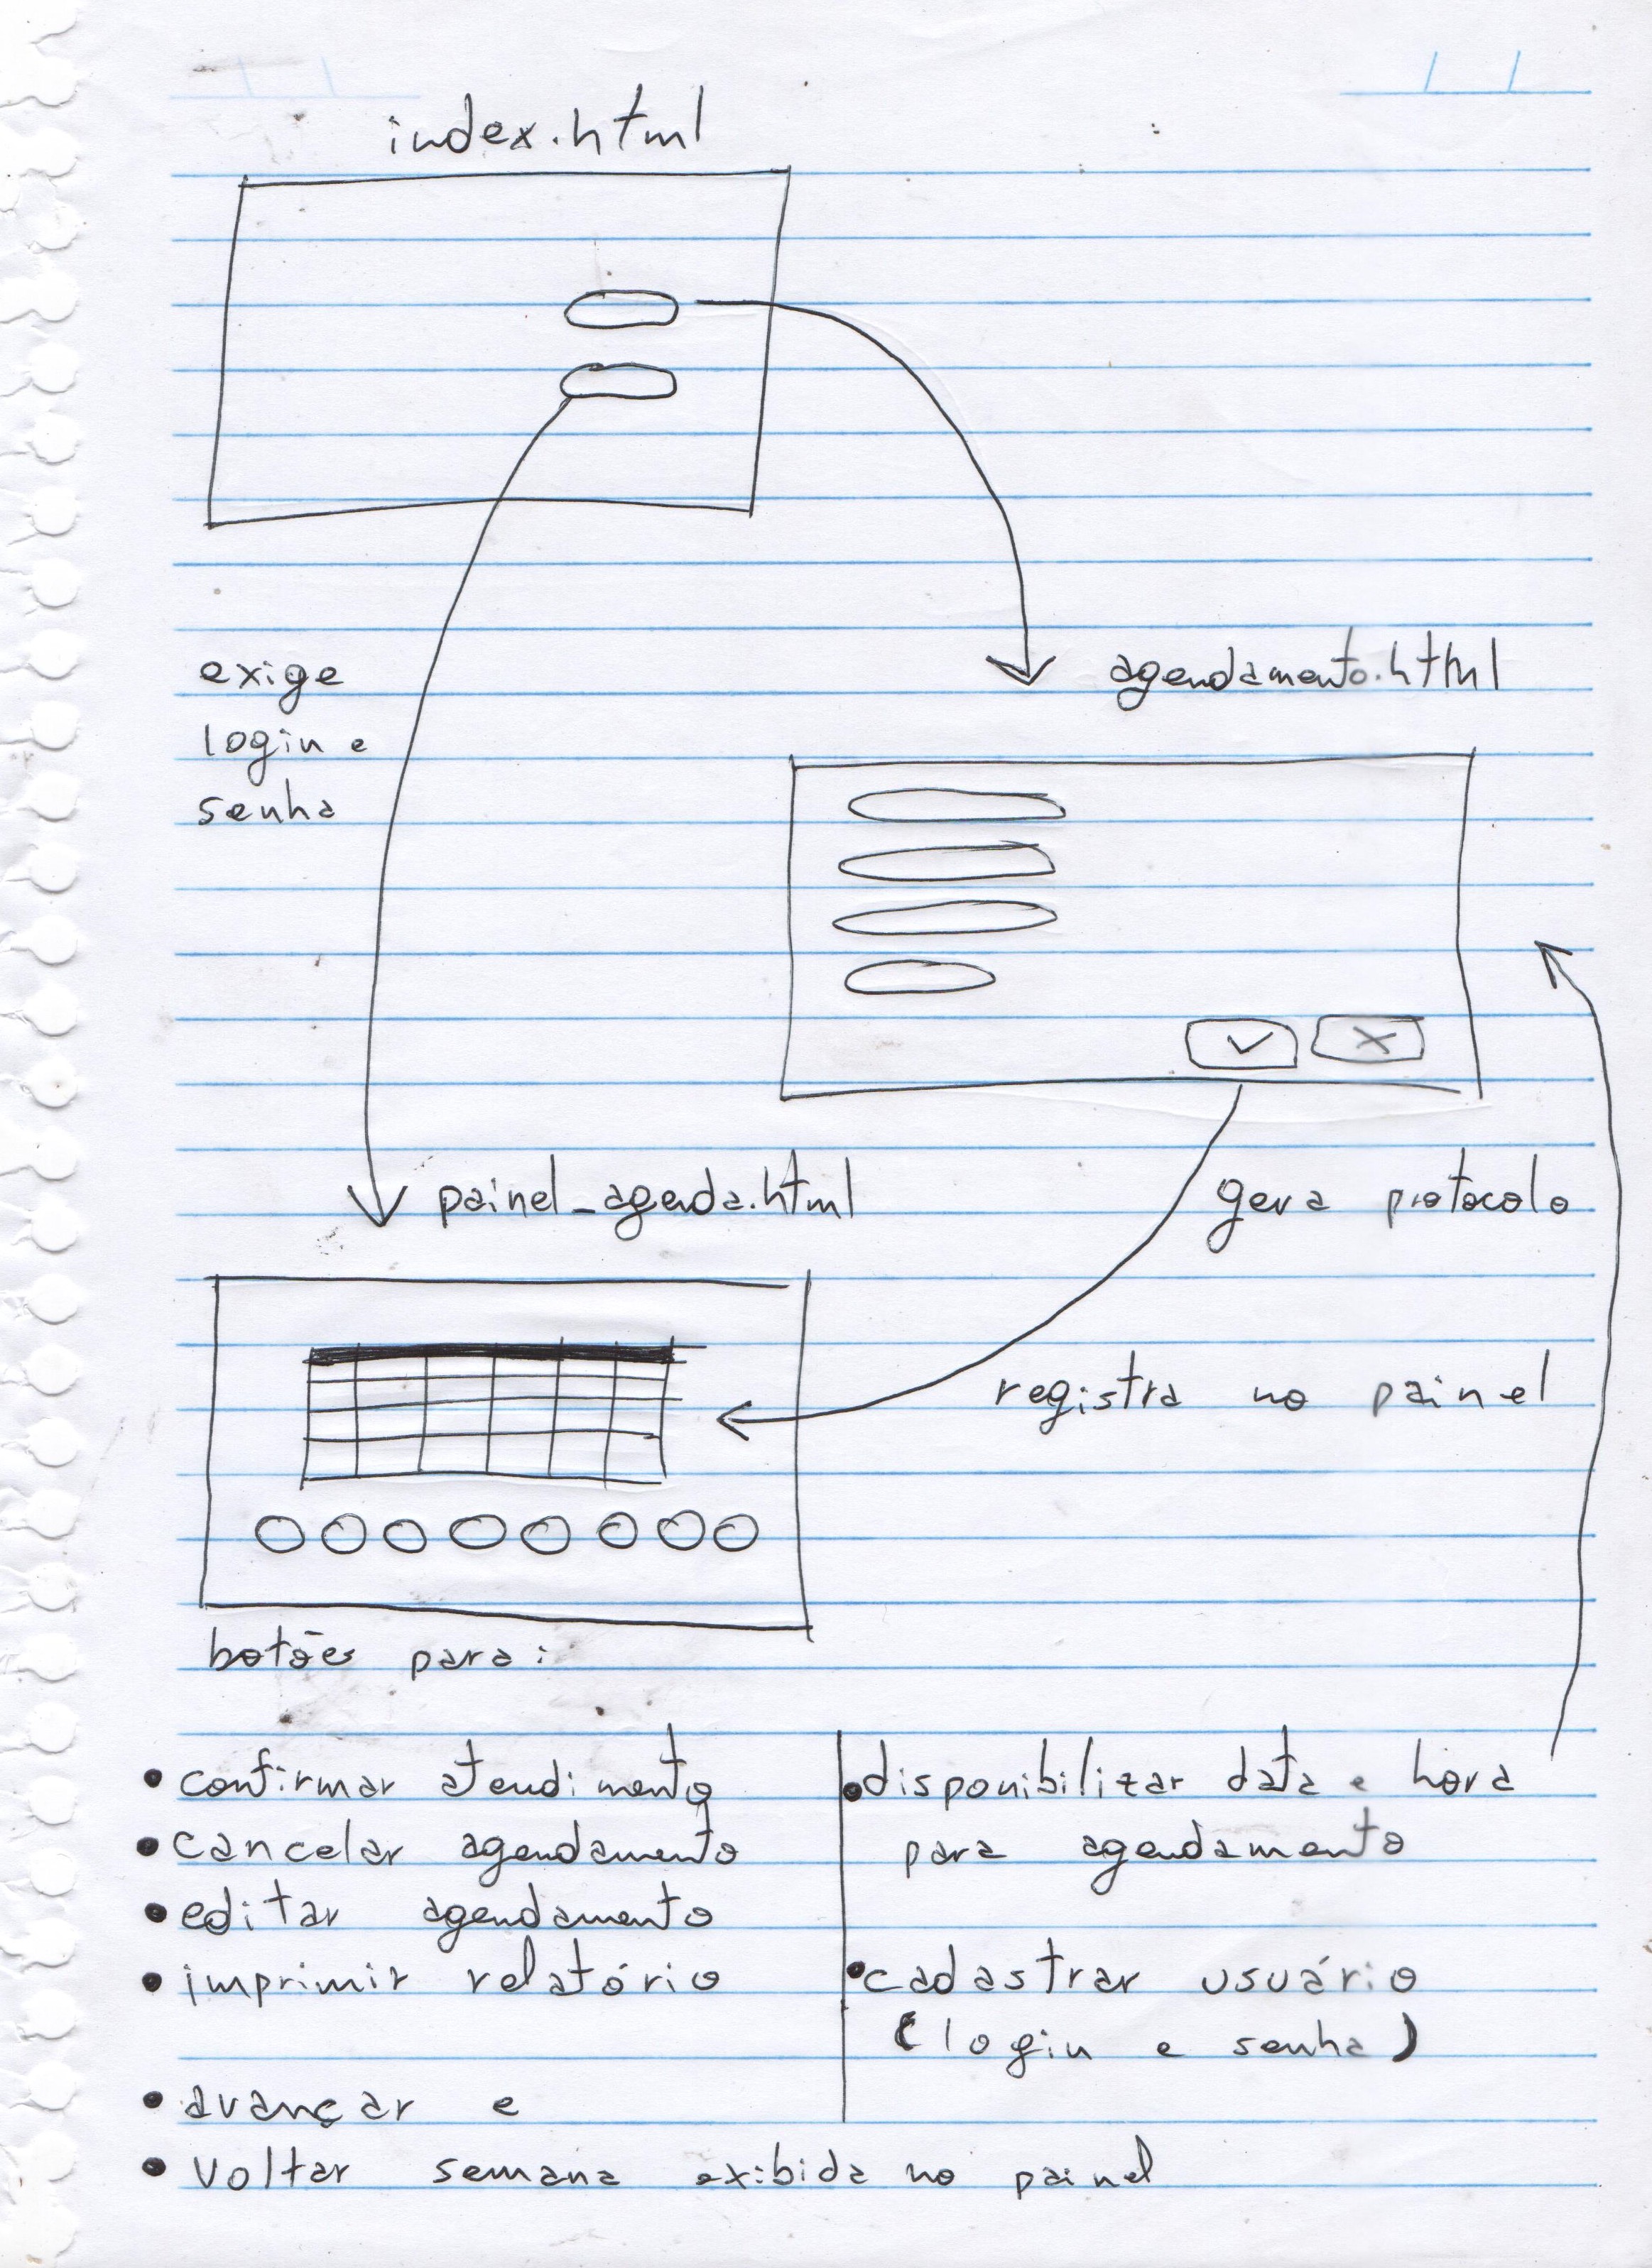 index.html
exige
login e
senha
agendamento.html
painel_agenda.html
gera protocolo
registra no painel
botões para:
• confirmar atendimento
• cancelar agendamento
• editar agendamento
• imprimir relatório
• avançar e
• voltar semana exibida no painel
• disponibilizar data e hora
para agendamento
• cadastrar usuário
(login e senha)